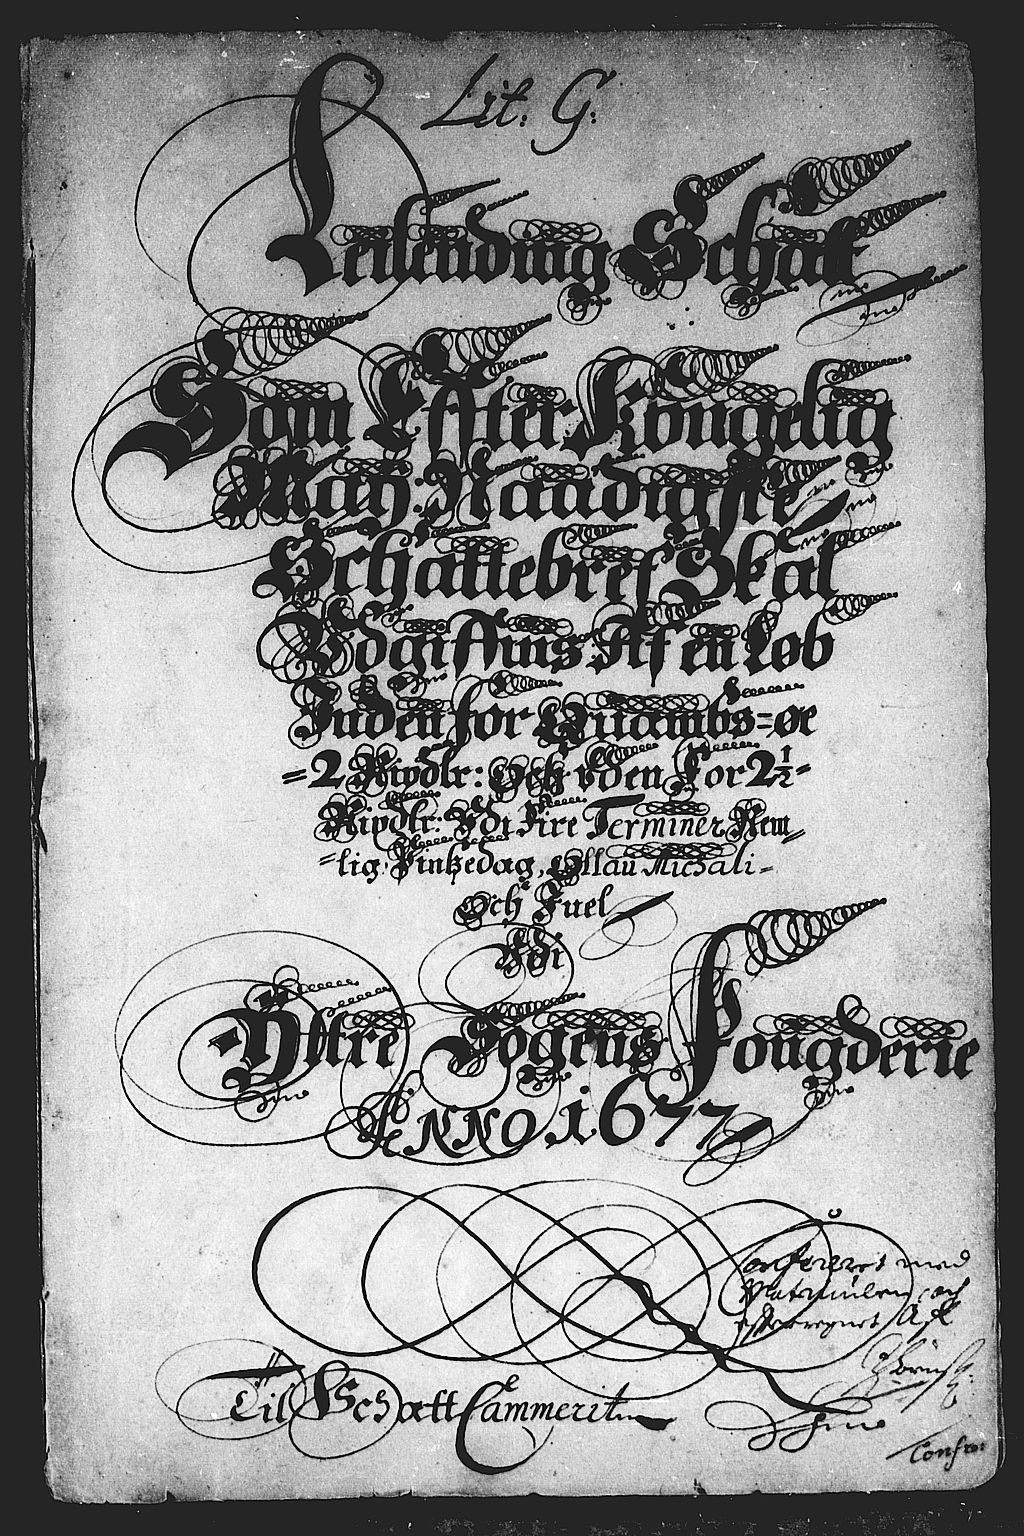 Lit: G:
Leilending Schatt
Som Effter Kongelig
May: Naadigste
Schattebref Skal
Vdgiffuis Af en Løb
Inden for Quambs=øe
=2 Rixdlr: Och vden For 2½=
Rixdlr: Vdi Fire Terminer Nem=
=lig: Pintzedag, Ollau Michali=
Och Juel
Vdi
Yttre Sogens Fougderie
ANNO. 1677
Confereret med
Matriculen och
efterregnet
Til Schatt Cammerit
Confr: